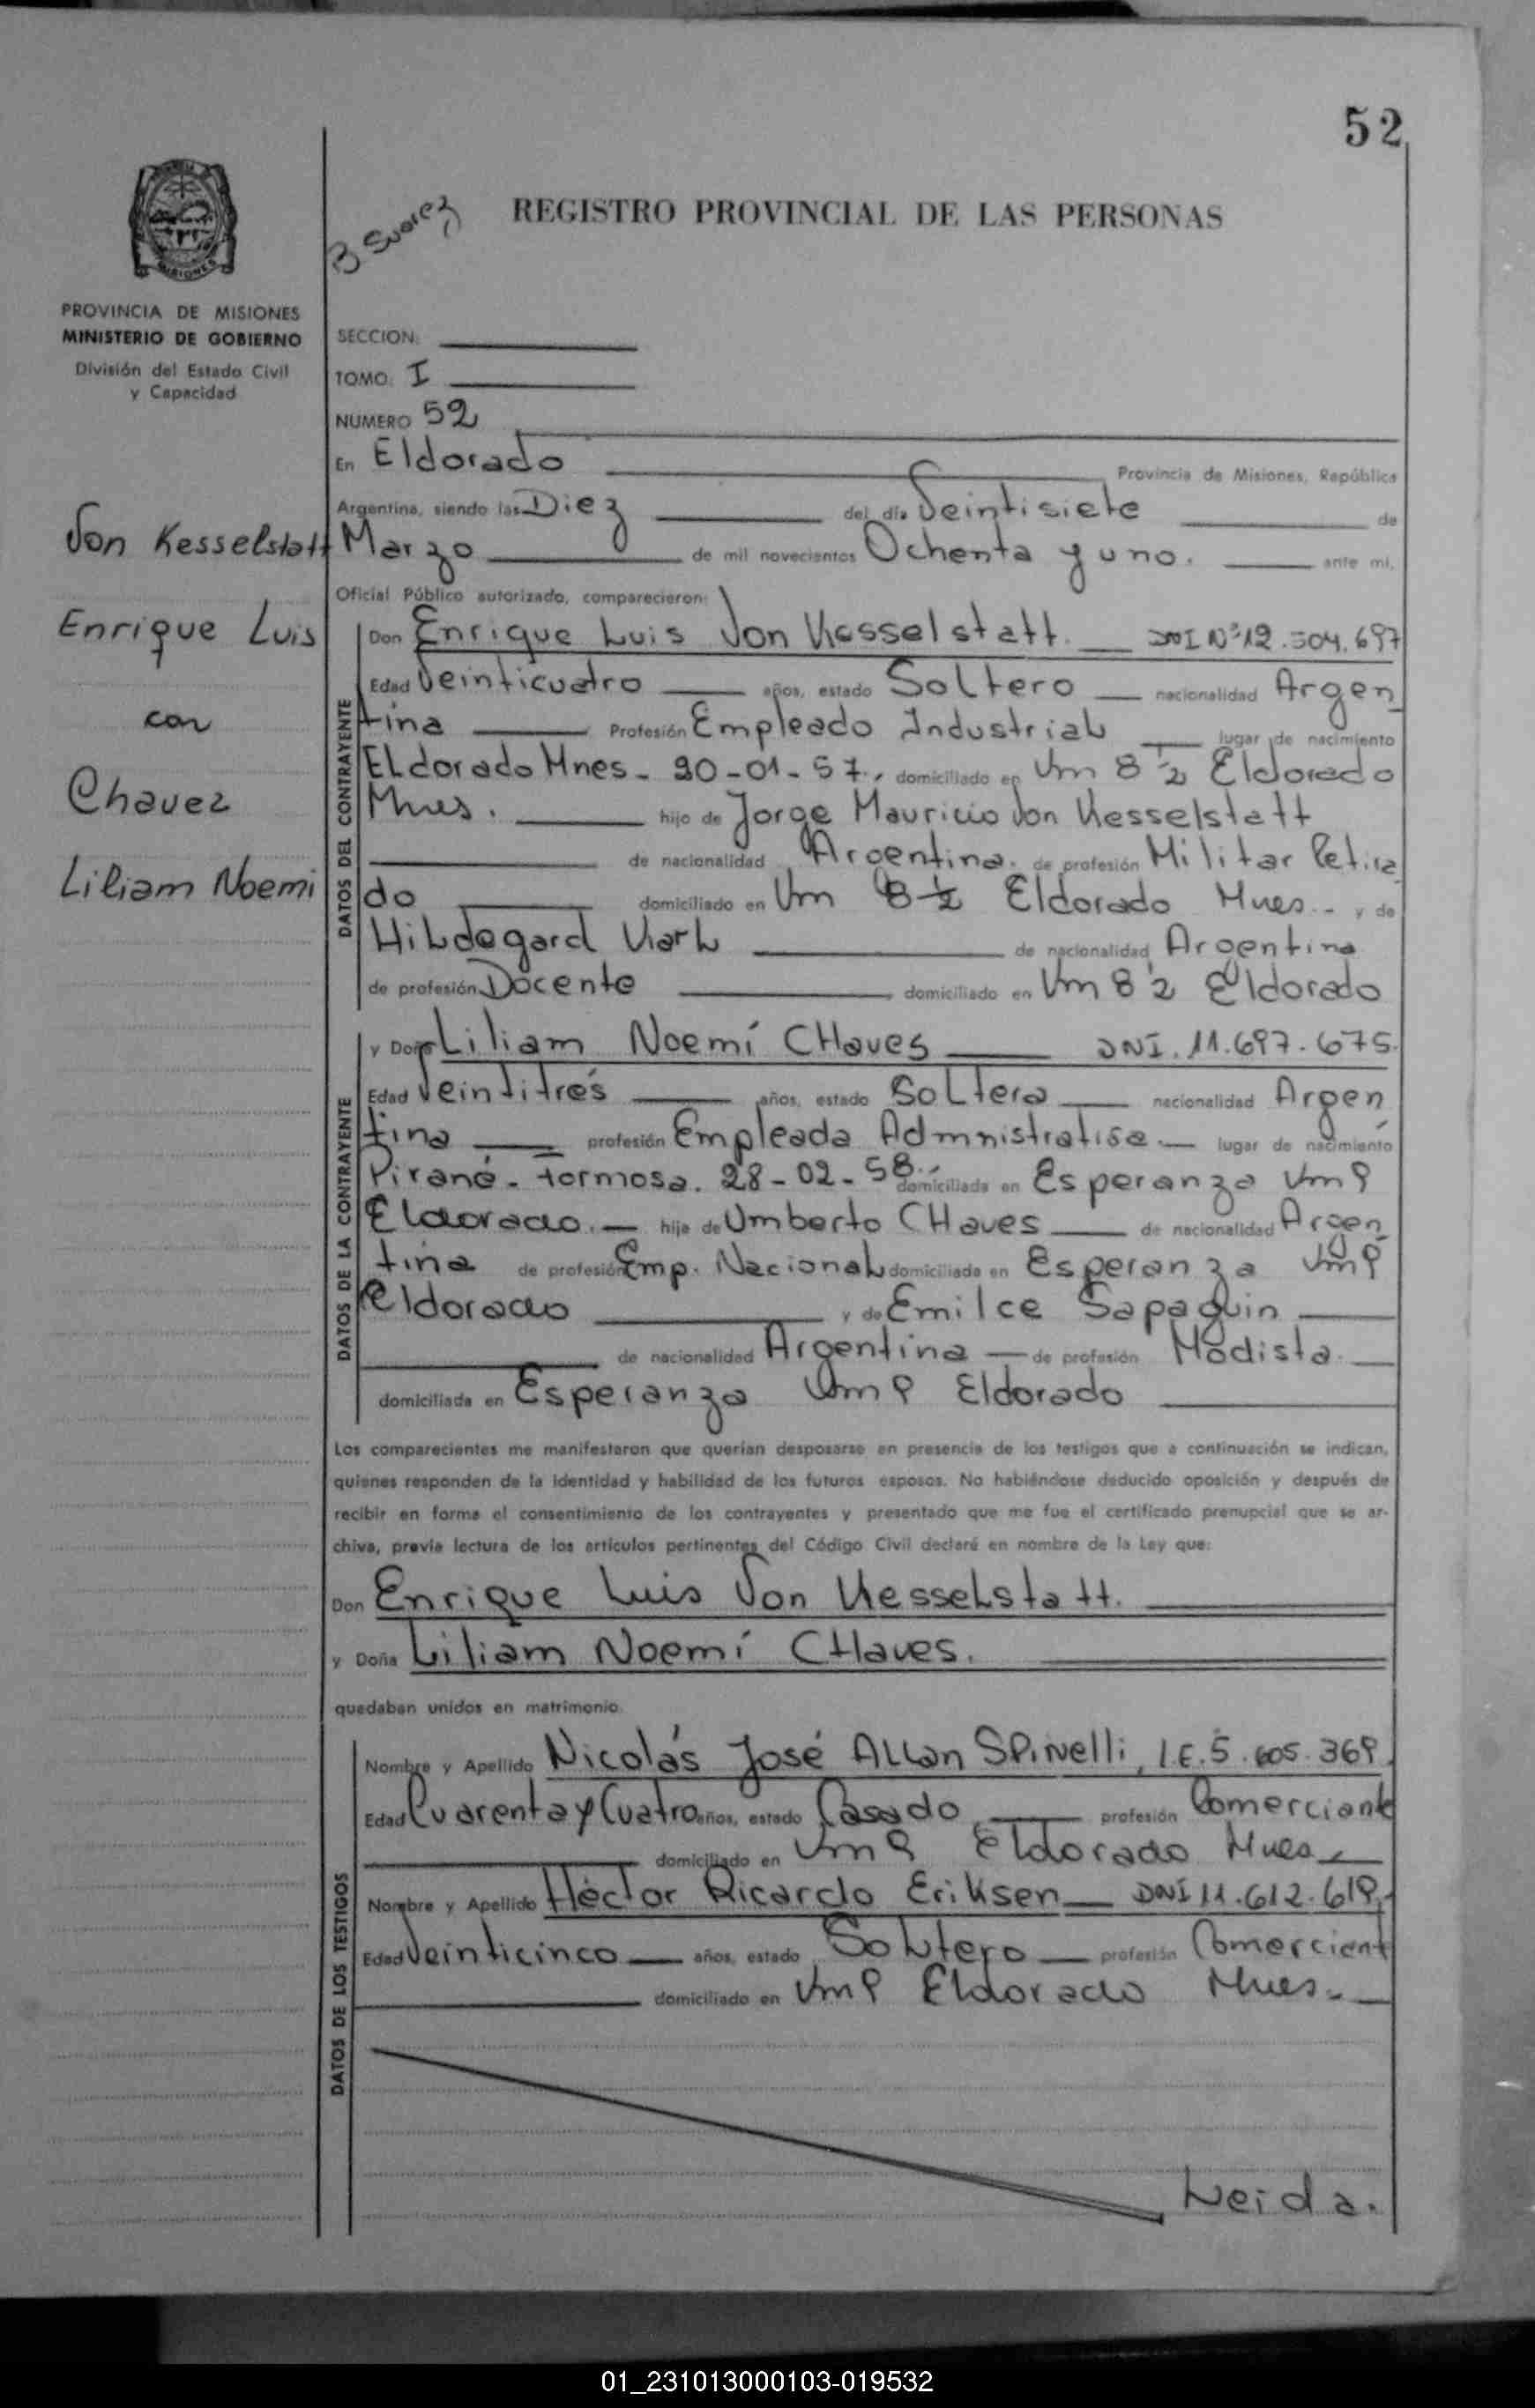 52
B Suarez
REGISTRO PROVINCIAL DE LAS PERSONAS
MISIONES
PROVINCIA DE MISIONES
MINISTERIO DE GOBIERNO
División del Estado Civil
y Capacidad
SECCION:
TOMO: I
NUMERO 52
En Eldorado Provincia de Misiones, República
Argentina, siendo las Diez del día Veintisiete de
Marzo de mil novecientos Ochenta y uno. ante mi,
Oficial Público autorizado, comparecieron:
Von Kesselstatt
Enrique Luis
con
Chavez
Liliam Noemi
DATOS DEL CONTRAYENTE
Don Enrique Luis Von Kesselstatt. DNI Nº 12.504.697
Edad Veinticuatro años, estado Soltero nacionalidad Argen
tina Profesión Empleado Industrial lugar de nacimiento
Eldorado Mnes - 20-01-57., domiciliado en Km 8 1/2 Eldorado
Mnes. hijo de Jorge Mauricio Von Kesselstatt
de nacionalidad Argentina. de profesión Militar Retira
do domiciliado en Km 8 1/2 Eldorado Mnes.- y de
Hildegard Karl de nacionalidad Argentina
de profesión Docente domiciliado en Km 8 1/2 Eldorado
DATOS DE LA CONTRAYENTE
y Doña Liliam Noemí CHaves DNI. 11.697.675.
Edad Veintitrés años, estado Soltera nacionalidad Argen
tina profesión Empleada Admnistratisa.- lugar de nacimiento
Pirané - Formosa. 28-02-58.- domiciliada en Esperanza Km 9
Eldorado.- hija de Umberto CHaves de nacionalidad Argen
tina de profesión Emp. Nacional domiciliada en Esperanza Km 9
Eldorado y de Emilce Sapaguin
de nacionalidad Argentina - de profesión Modista.
domiciliada en Esperanza Km 9 Eldorado
Los comparecientes me manifestaron que querían desposarse en presencia de los testigos que a continuación se indican,
quienes responden de la identidad y habilidad de los futuros esposos. No habiéndose deducido oposición y después de
recibir en forma el consentimiento de los contrayentes y presentado que me fue el certificado prenupcial que se ar-
chiva, previa lectura de los artículos pertinentes del Código Civil declaré en nombre de la Ley que:
Don Enrique Luis Von Kesselstatt.
y Doña Liliam Noemí CHaves.
quedaban unidos en matrimonio.
DATOS DE LOS TESTIGOS
Nombre y Apellido Nicolás José Allan Spinelli, L.E. 5.605.369.
Edad Cuarenta y Cuatro años, estado Casado profesión Comerciante
domiciliado en Km 9 Eldorado Mnes
Nombre y Apellido Héctor Ricardo Eriksen DNI 11.612.619.
Edad Veinticinco años, estado Soltero profesión Comerciant
domiciliado en Km 9 Eldorado Mnes.
Leida.
01_231013000103-019532